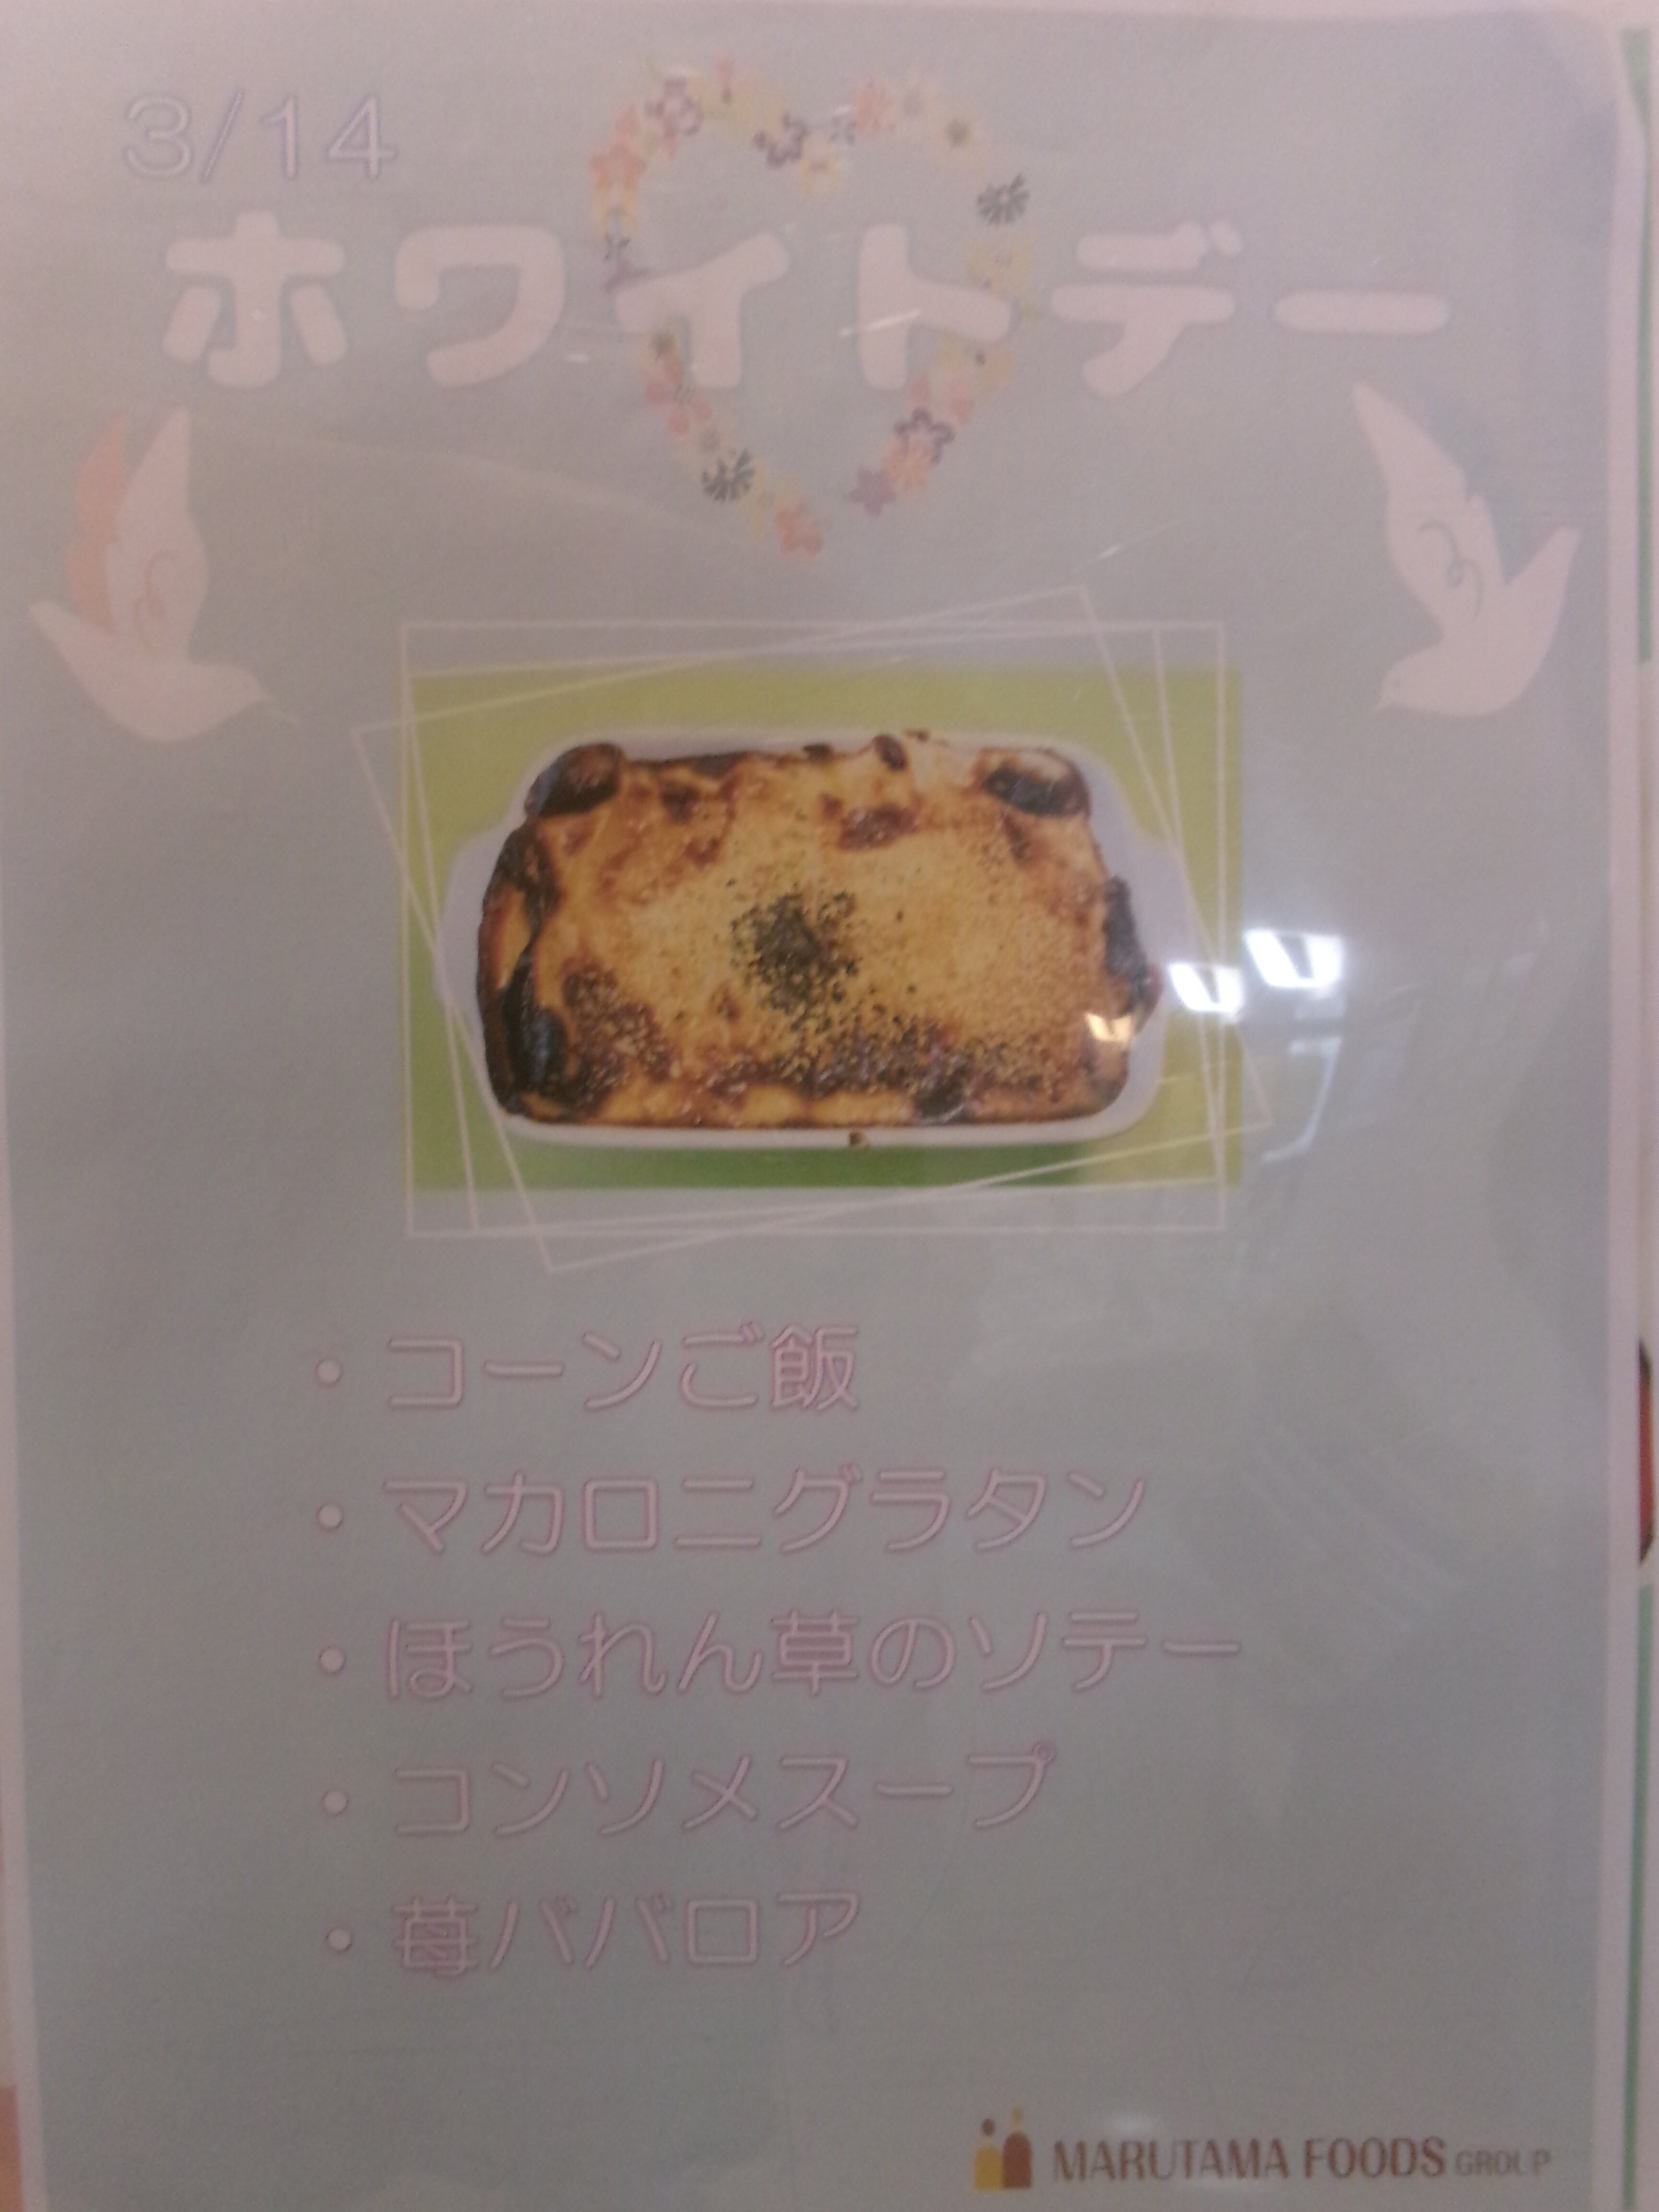 3/14
ホワイトデー
・コーンご飯
・マカロニグラタン
・ほうれん草のソテー
・コンソメスープ
・苺ババロア
MARUTAMA FOODS GROUP